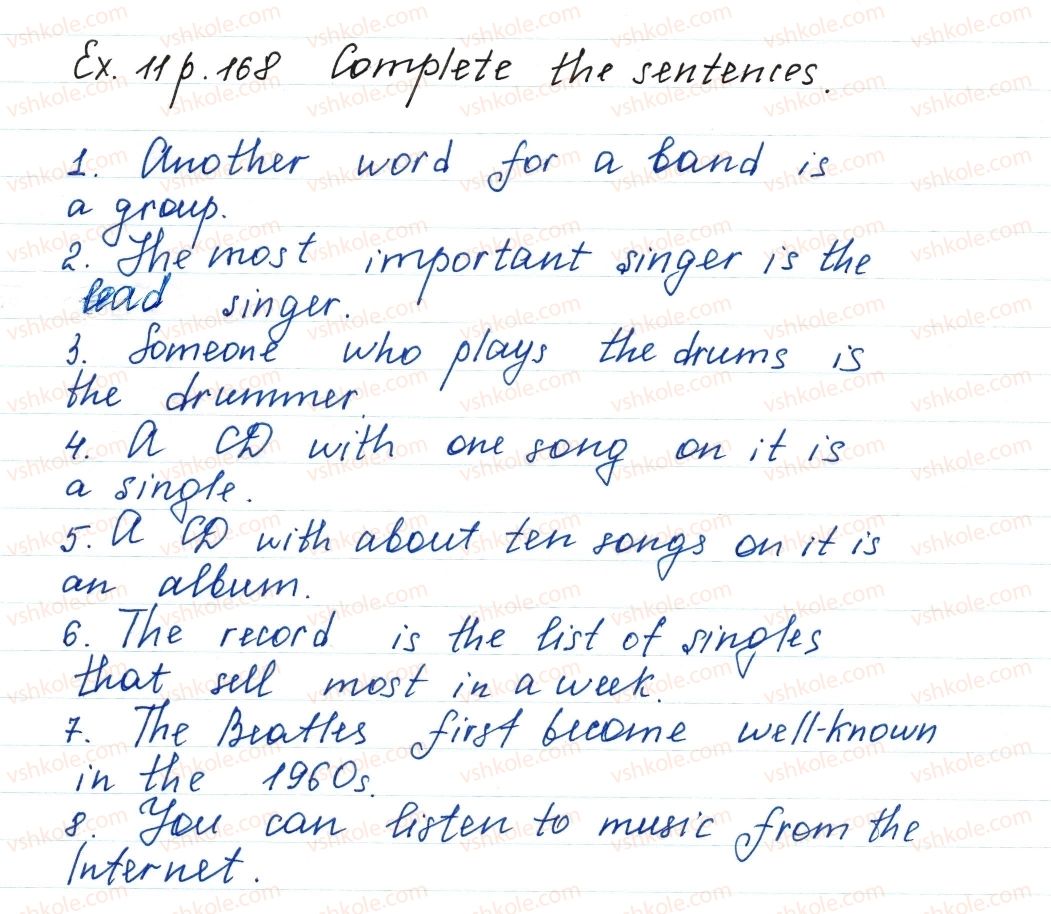 Ex. 11 p. 168 Complete the sentences.
1. Another word for a band is
a group.
2. The most important singer is the
lead singer.
3. Someone who plays the drums is
the drummer.
4. A CD with one song on it is
a single.
5. A CD with about ten songs on it is
an album.
6. The record is the list of singles
that sell most in a week.
7. The Beatles first become well-known
in the 1960s.
8. You can listen to music from the
Internet.